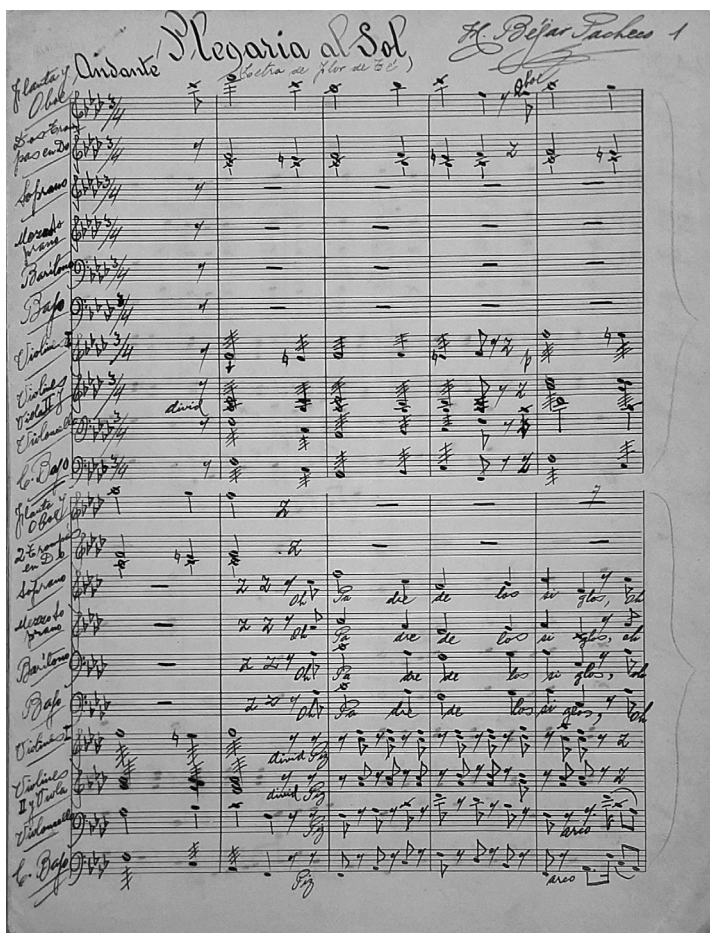 Plegaria al Sol
H. Béjar Pacheco 1
Andante
(Letra de Flor de Té)
Flauta y
Oboe
Oboe
Dos Trom
pas en Do
Soprano
Mezzoso
prano
Barítono
Bajo
Violines I
Violines
II y
Viola
divid
Violoncello
C. Bajo
Flauta y
Oboe
2 Trompas
en Do
Soprano
Oh Pa dre de los si glos, Oh
Mezzoso
prano
Oh Pa dre de los si glos, oh
Barítono
Oh Pa dre de los si glos, oh
Bajo
Oh Pa dre de los si glos, Oh
Violines I
divid Piz
Violines
II y Viola
divid Piz
Violoncello
Piz arco
C. Bajo
Piz arco